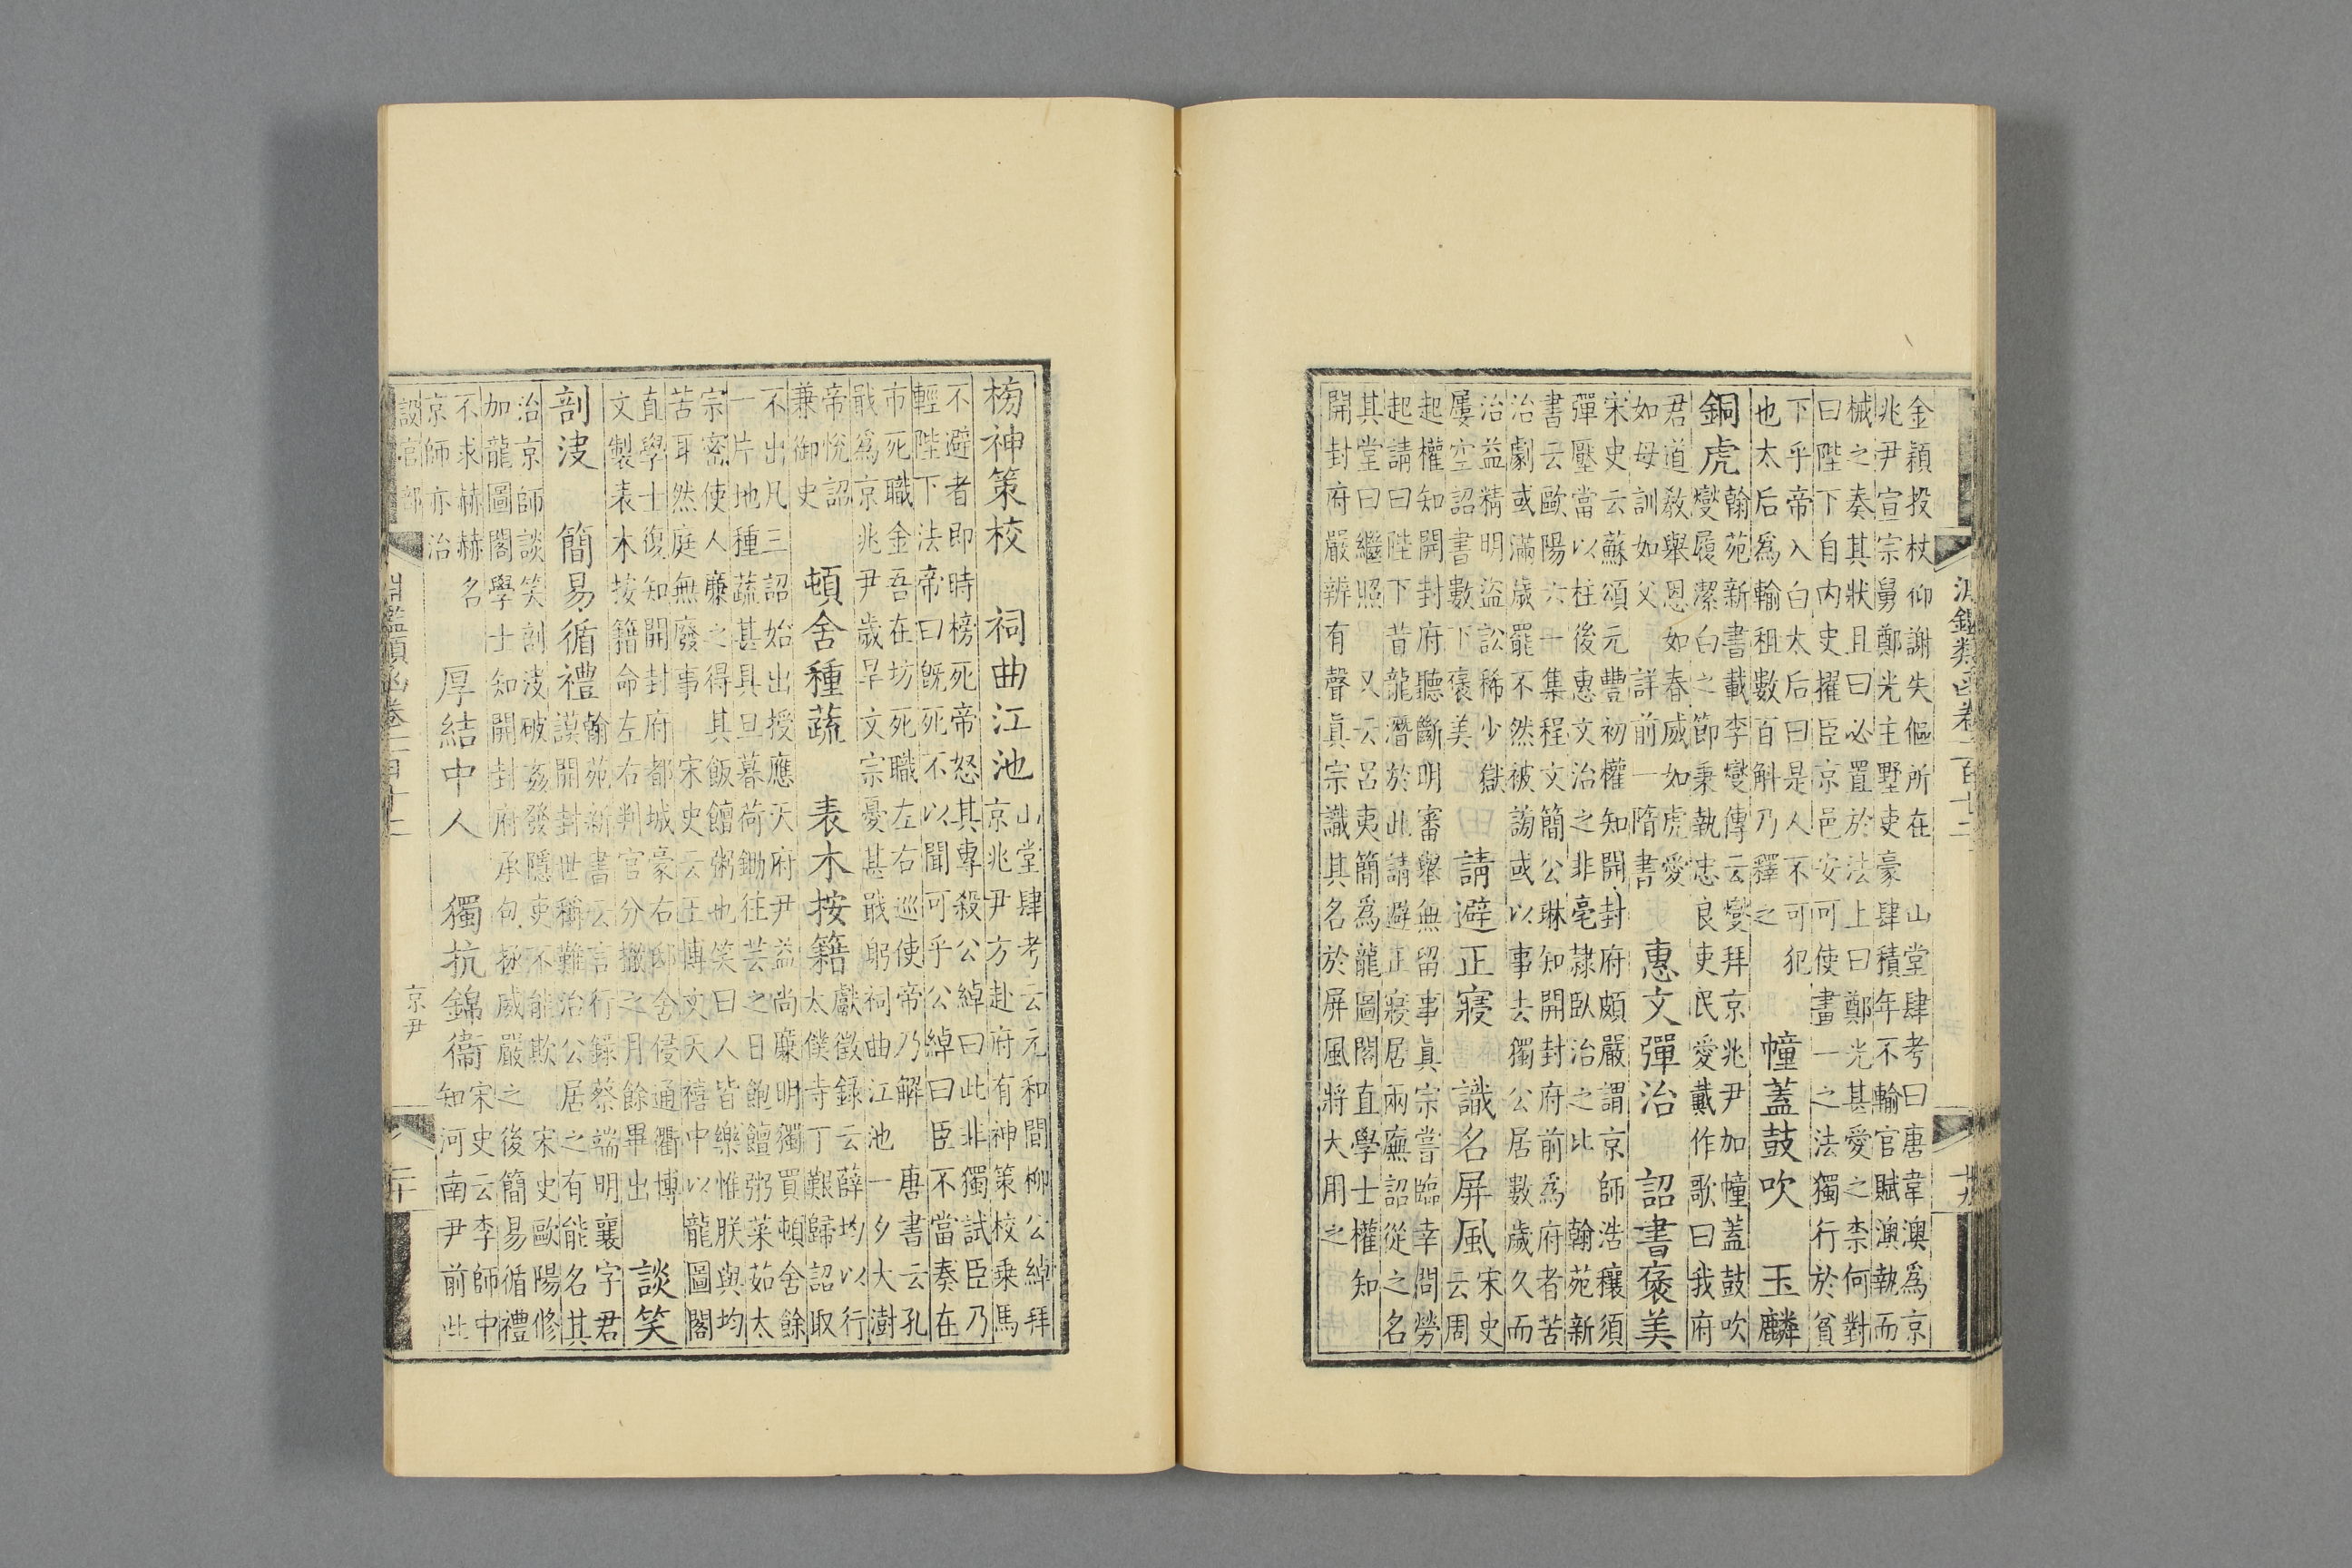 金穎投杖仰謝失傴所在 山堂肆考曰唐韋澳爲京
兆尹宣宗舅鄭光主墅吏豪肆積年不輸官賦澳執而
械之奏其狀且曰必置於法上曰鄭光甚愛之柰何對
曰陛下自内史擢臣京邑安可使畫一之法獨行於貧
下乎帝入白太后曰是人不可犯
也太后爲輸租數百斛乃釋之
幢蓋鼓吹 玉麟
銅虎
翰苑新書載李燮傳云燮拜京兆尹加幢蓋鼓吹
燮履潔白之節秉執忠良吏民愛戴作歌曰我府
君道教舉恩如春威如虎愛
如母訓如父 詳前一 隋書
惠文彈治 詔書褒美
宋史云蘇頌元豐初權知開封府頗嚴謂京師浩穰須
彈壓當以柱後惠文治之非亳隸臥治之比 翰苑新
書云歐陽六一集程文簡公琳知開封府前爲府者苦
治劇或滿歲罷不然被謗或以事去獨公居數歲久而
治益精明盜訟稀少獄
屢空詔書數下褒美
請避正寢 識名屏風
宋史
云周
起權知開封府聽斷明審舉無留事眞宗嘗臨幸問勞
起請曰陛下昔龍潛於此請避正寢居兩廡詔從之名
其堂曰繼照 又云呂夷簡爲龍圖閣直學士權知
開封府嚴辨有聲眞宗識其名於屏風將大用之
榜神策校 祠曲江池
山堂肆考云元和間柳公綽拜
京兆尹方赴府有神策校乘馬
不避者即時榜死帝怒其專殺公綽曰此非獨試臣乃
輕陛下法帝曰旣死不以聞可乎公綽曰臣不當奏在
市死職金吾在坊死職左右巡使帝乃解 唐書云孔
戢爲京兆尹歲旱文宗憂甚戢躬祠曲江池一夕大澍
帝悅詔
兼御史
頓舍種蔬 表木按籍
獻徵錄云薛均以行
太僕寺丁艱歸詔取
不出凡三詔始出授應天府尹益尚廉明獨買頓舍餘
一片地種蔬甚具旦暮荷鋤往芸之日飽饘粥菜茹太
宗密使人廉之得其飯饘粥也笑曰人皆樂惟朕與均
苦耳然庭無廢事 宋史云王博文天禧中以龍圖閣
直學士復知開封府都城豪右邸舍侵通衢博
文製表木按籍命左右判官分撤之月餘畢出
談笑
剖波 簡易循禮
翰苑新書云言行錄蔡端明襄字君
謨開封世稱難治公居之有能名其
治京師談笑剖波破姦發隱吏不能欺 宋史歐陽修
加龍圖閣學士知開封府承包拯威嚴之後簡易循禮
不求赫赫名
京師亦治
厚結中人 獨抗錦衞
宋史云李師中
知河南尹前此
設官部
京尹
二十